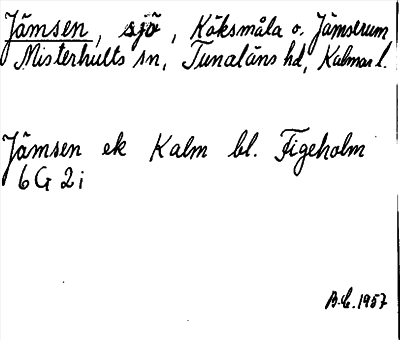 Jämsen, sjö, Köksmåla o. Jämserum
Misterhults sn, Tunaläns hd, Kalmar l.
Jämsen ek Kalm bl. Figeholm
6G 2i
B.E. 1957